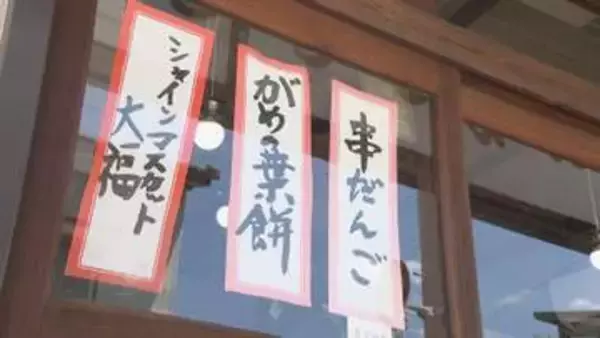 串だんご
がめの葉餅
シャインマスカット
大福